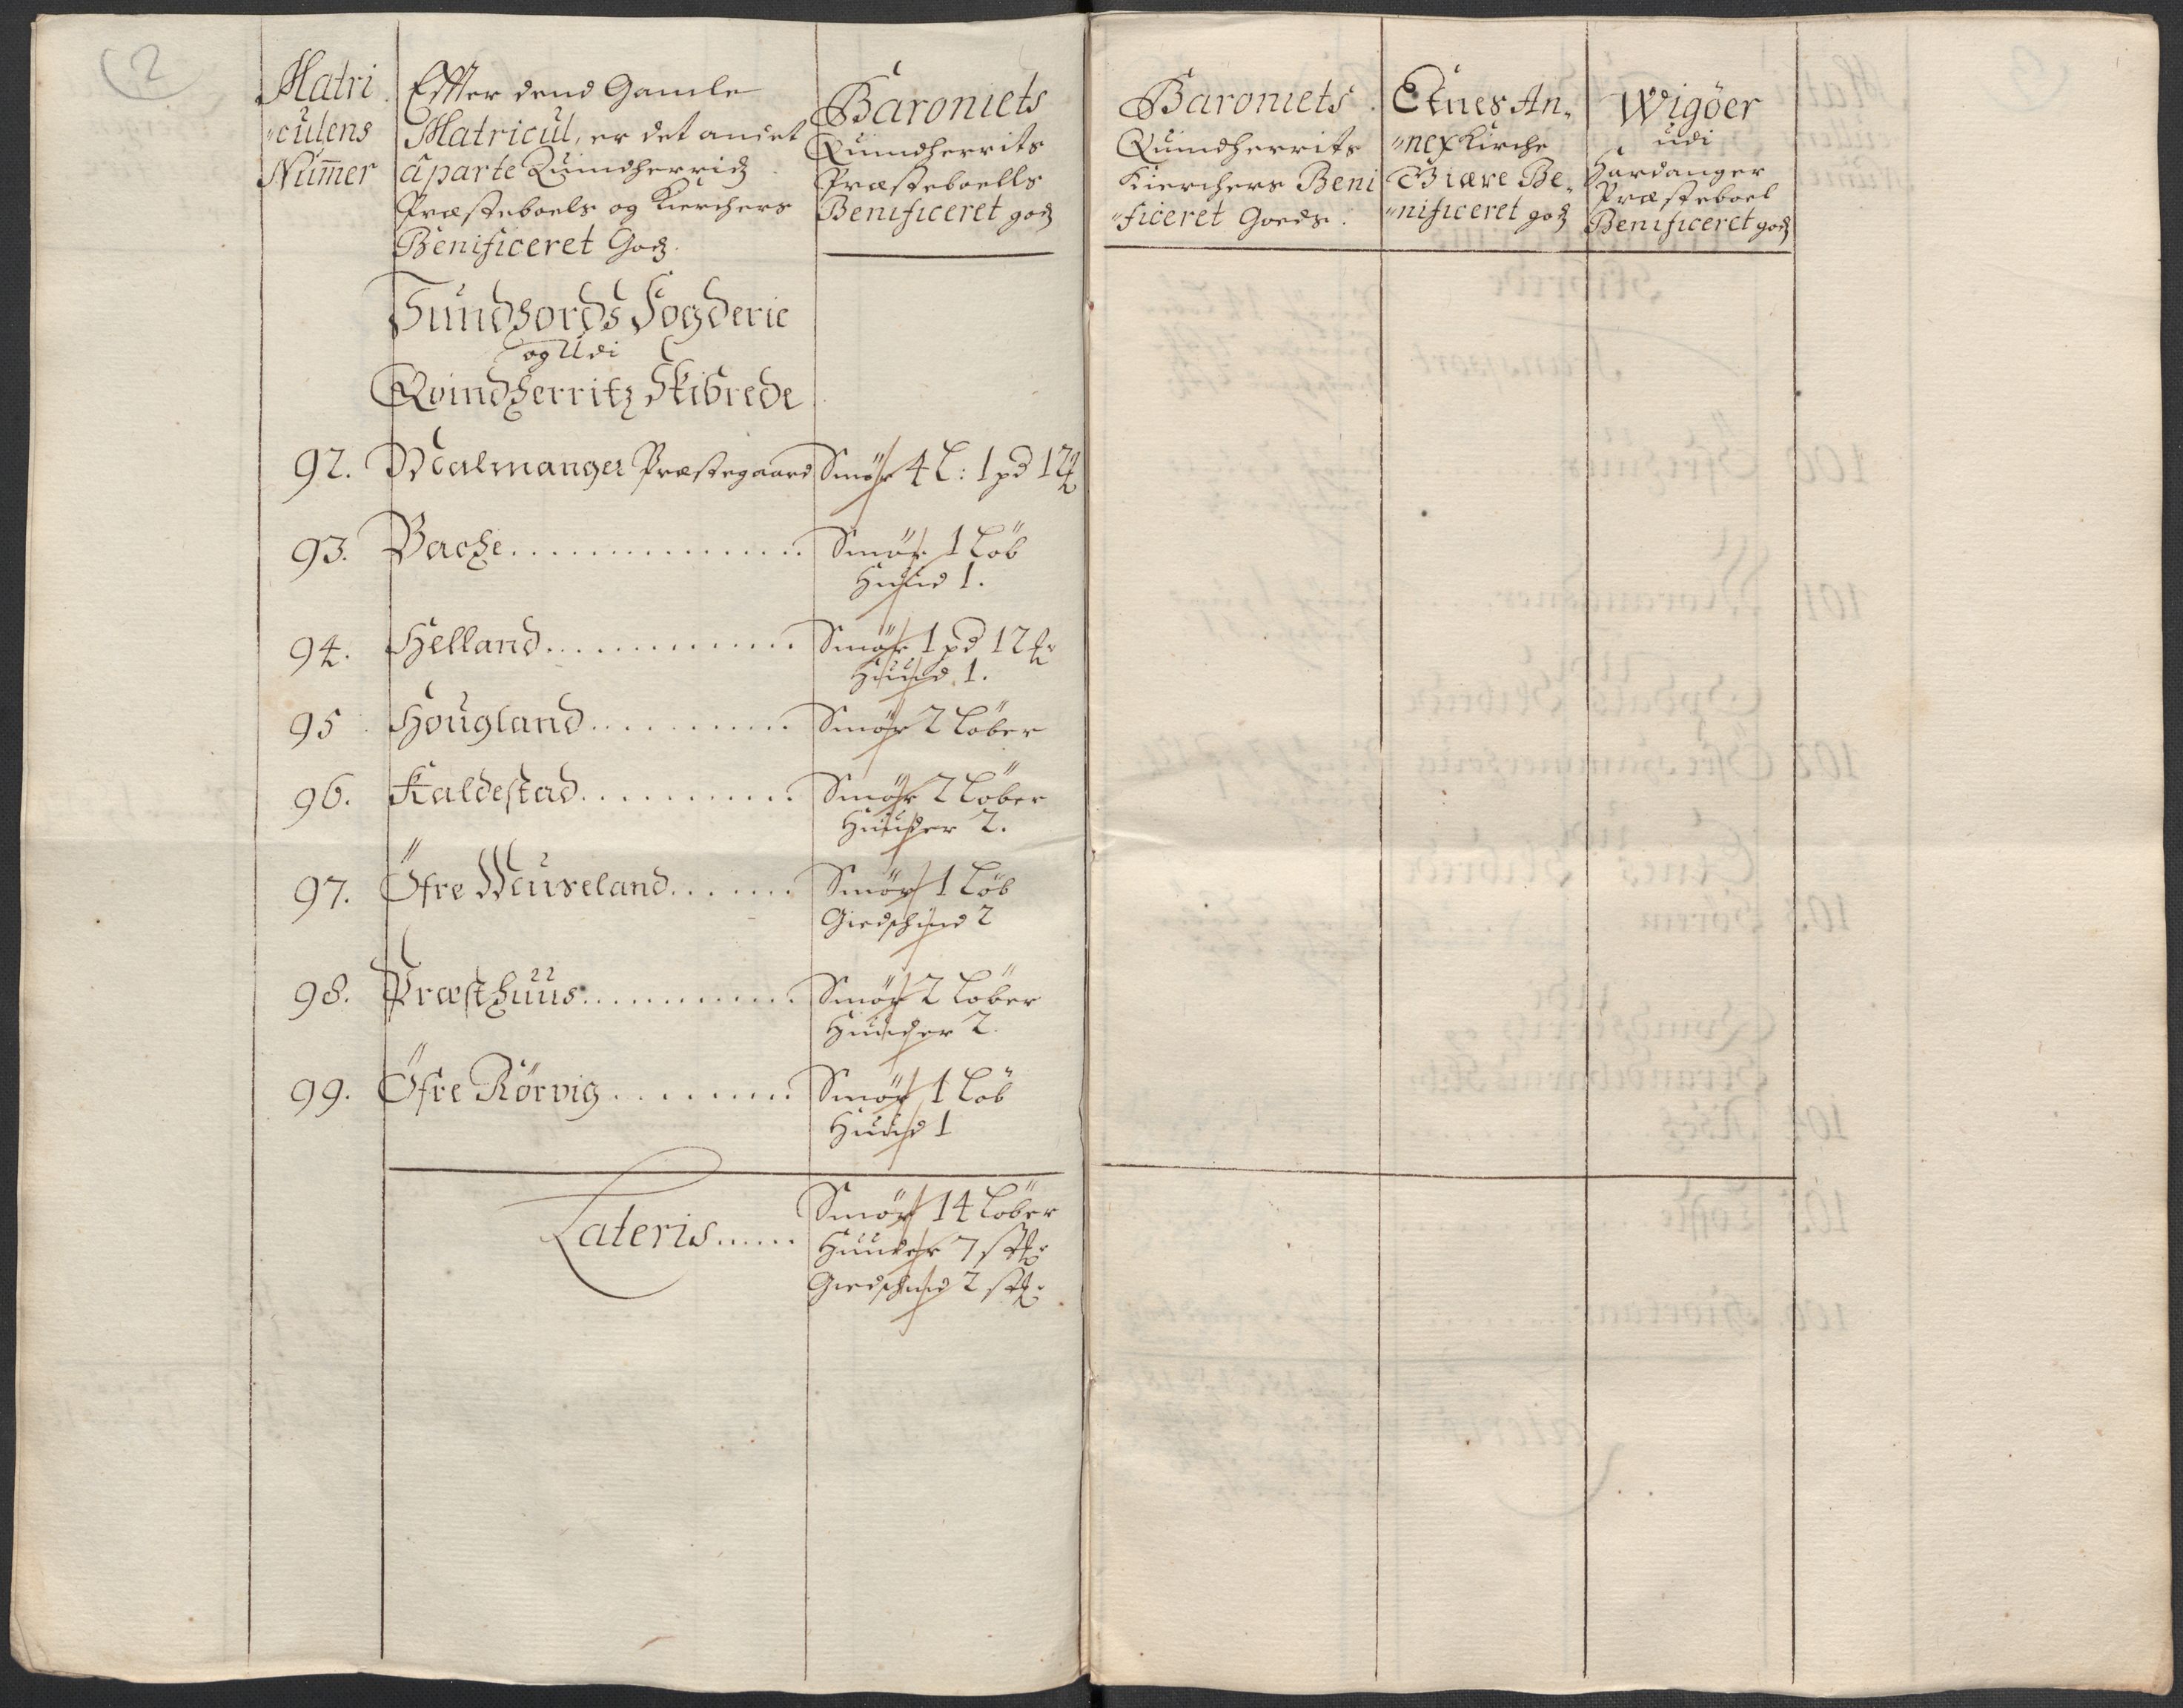 2
Matri
"culens
Num̄er
Effter dend Gamle
Matricul, er det andet
aparte Quindherridz
Præsteboels og Kierchers
Benificeret Godz.
Baroniets
Quindherrits
Præsteboells
Benificeret godz
Baroniets
Quindherrits
Kierchers Beni
"ficeret Goeds.
Etnes An„
"nex Kirche
Giære Be„
"nificeret godz
Wigöer
udi
Hardanger
Præsteboel
Benificeret godz
Sundhords Fogderie
og Udi
Qvindherritz Skibrede
92. Malmanger Præstegaard Smör 4 L: 1 pd 12 ℔
93. Bache Smör 1 Löb
Huud 1.
94. Helland Smör 1 pd 12 ℔
Huud 1.
95 Hougland Smör 2 Löber
96. Kaldestad Smör 2 Löber
Huuder 2.
97. Öfre Museland Smör 1 Löb
Giedschind 2
98. Præsthuus Smör 2 Löber
Huuder 2.
99. Öfre Rörvig Smör 1 Löb
Huud 1
Lateris Smör 14 Löber
Huuder 7 stk:
Giedschind 2 stk: